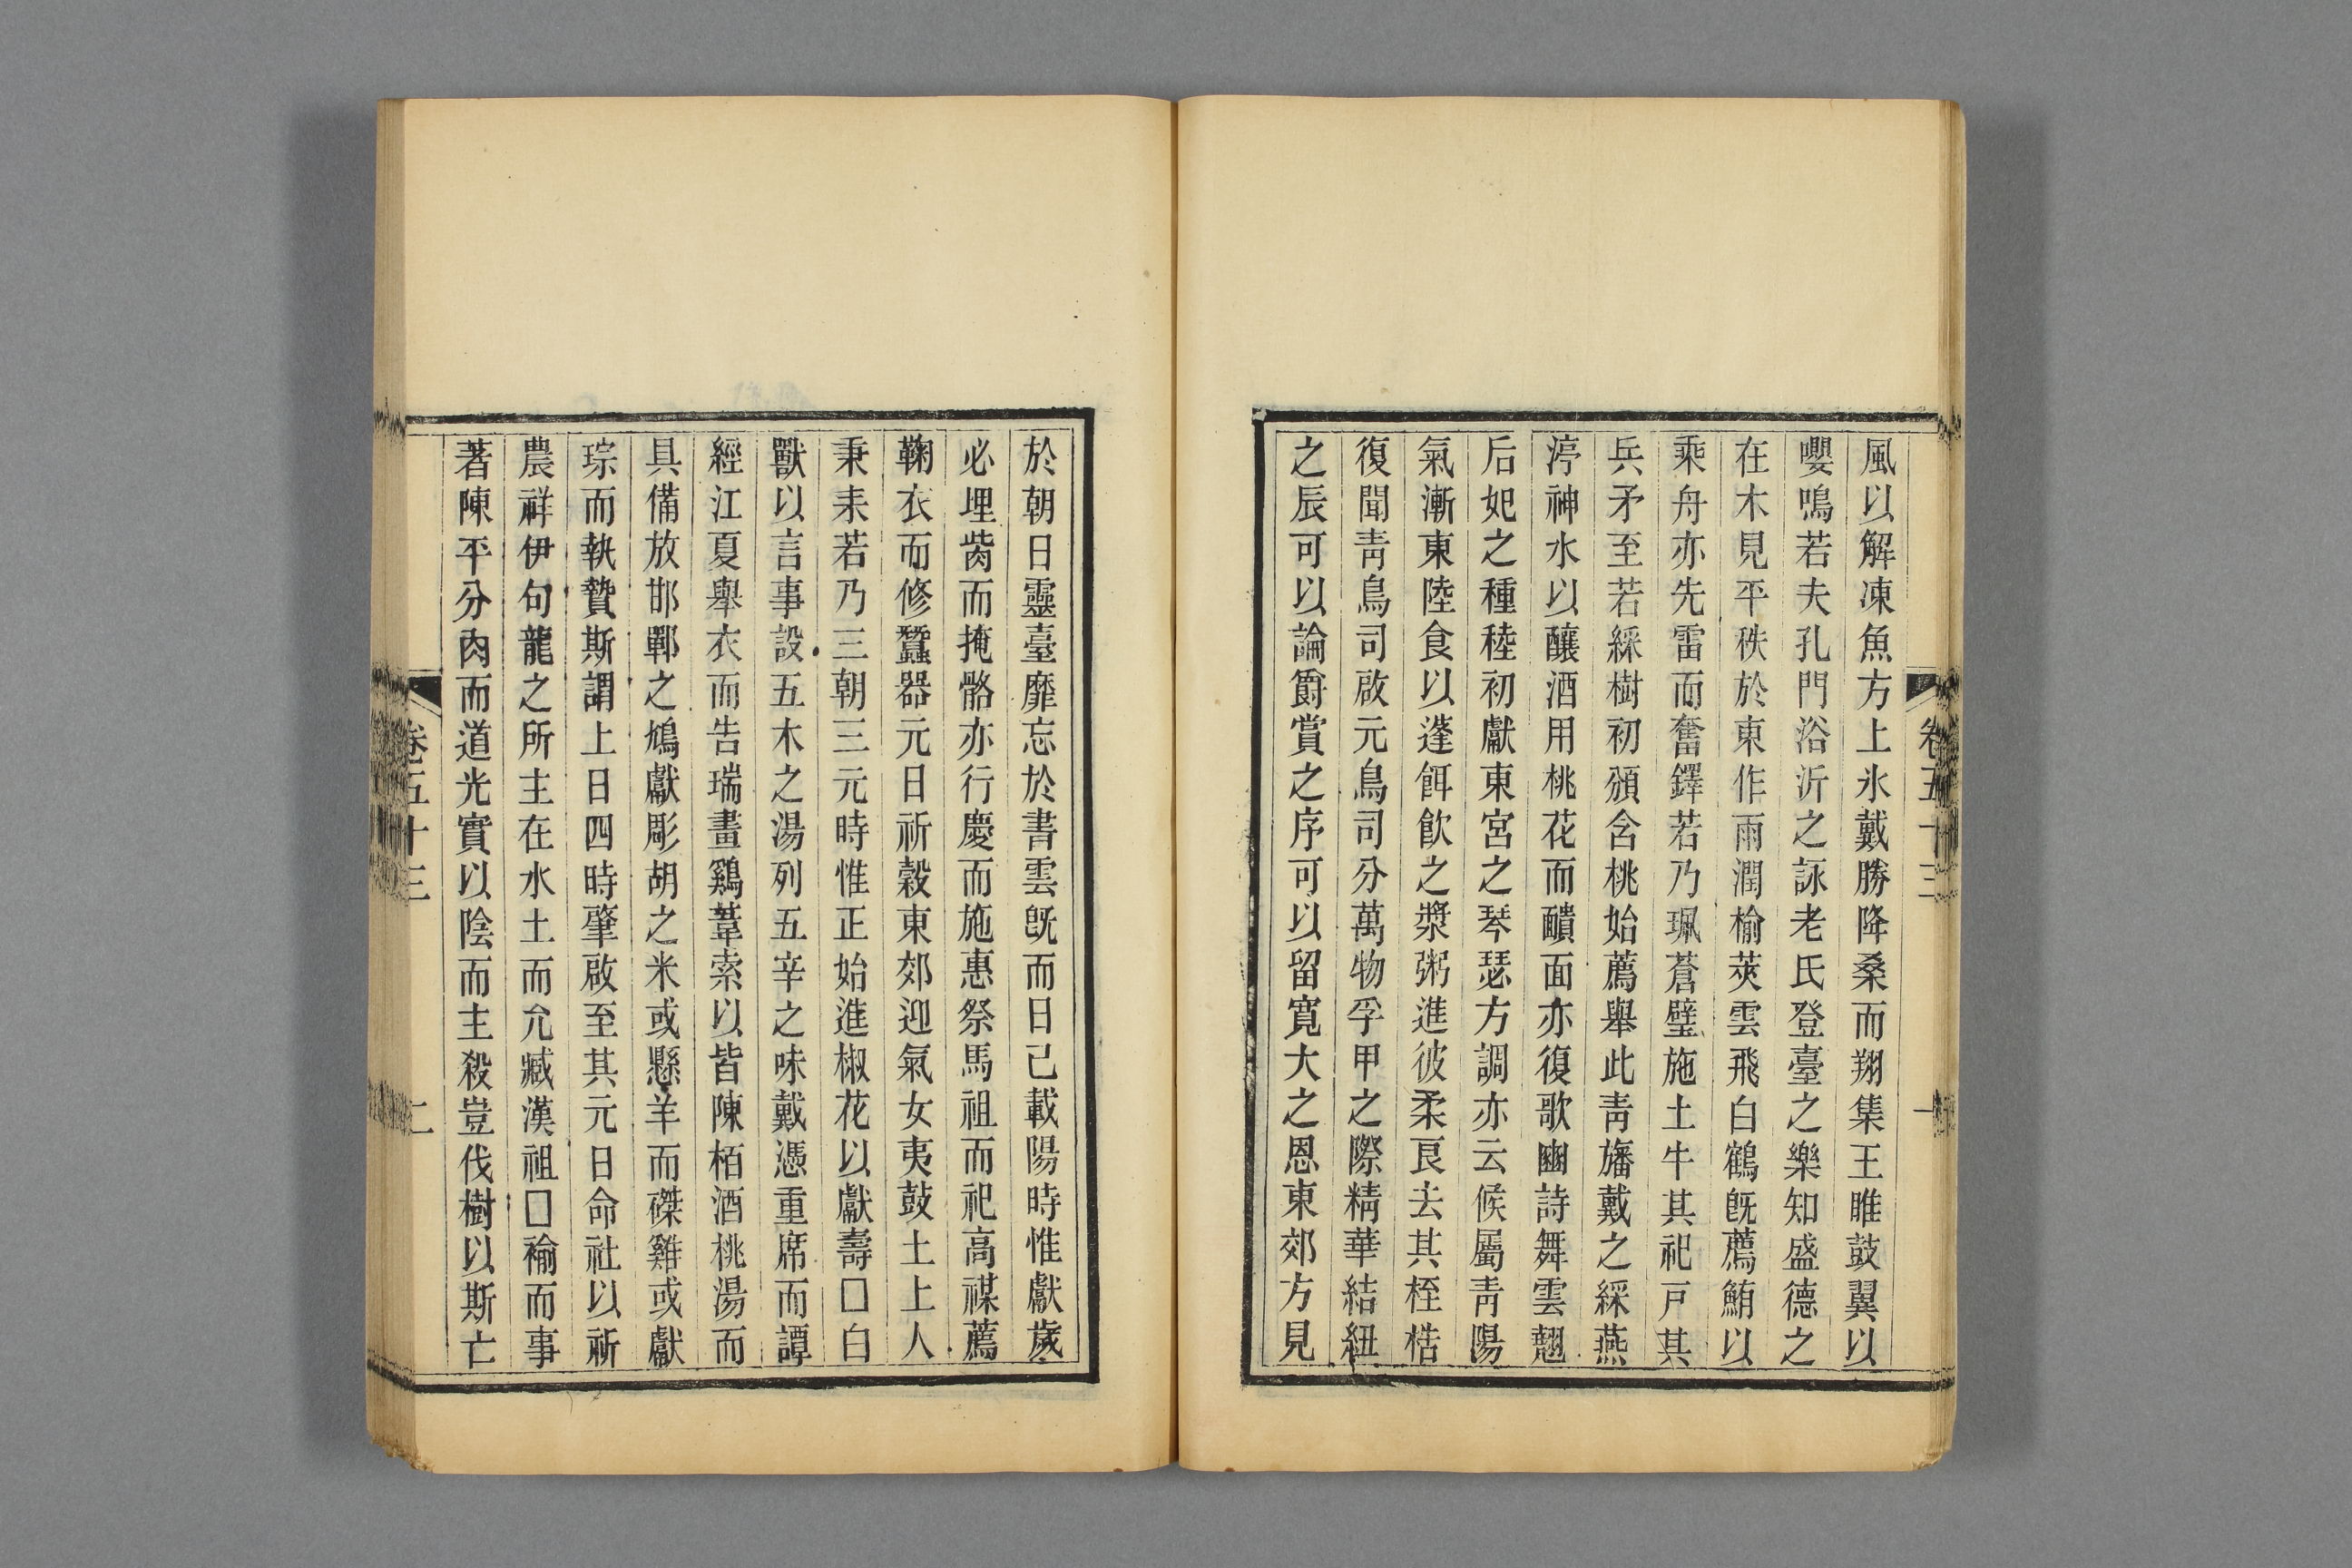 卷五十三
一
風以解凍魚方上氷戴勝降桑而翔集王睢鼓翼以
嚶鳴若夫孔門浴沂之詠老氏登臺之樂知盛德之
在木見平秩於東作雨潤榆莢雲飛白鶴旣薦鮪以
乘舟亦先雷而奮鐸若乃珮蒼璧施土牛其祀戸其
兵矛至若綵樹初頒含桃始薦舉此靑旛戴之綵燕
渟神水以釀酒用桃花而靧面亦復歌豳詩舞雲翹
后妃之種稑初獻東宮之琴瑟方調亦云候屬靑陽
氣漸東陸食以蓬餌飮之漿粥進彼柔良去其桎梏
復聞靑鳥司啟元鳥司分萬物孚甲之際精華結紐
之辰可以論爵賞之序可以留寬大之恩東郊方見
於朝日靈臺靡忘於書雲旣而日己載陽時惟獻歲
必埋胔而掩骼亦行慶而施惠祭馬祖而祀高禖薦
鞠衣而修蠶器元日祈穀東郊迎氣女夷鼓土上人
秉耒若乃三朝三元時惟正始進椒花以獻壽□白
獸以言事設五木之湯列五辛之味戴憑重席而譚
經江夏舉衣而告瑞畫鷄葦索以皆陳栢酒桃湯而
具備放邯鄲之鳩獻彫胡之米或懸羊而磔雞或獻
琮而執贄斯謂上日四時肇啟至其元日命社以祈
農祥伊句龍之所主在水土而允臧漢祖□禴而事
著陳平分肉而道光實以陰而主殺豈伐樹以斯亡
卷五十三
二